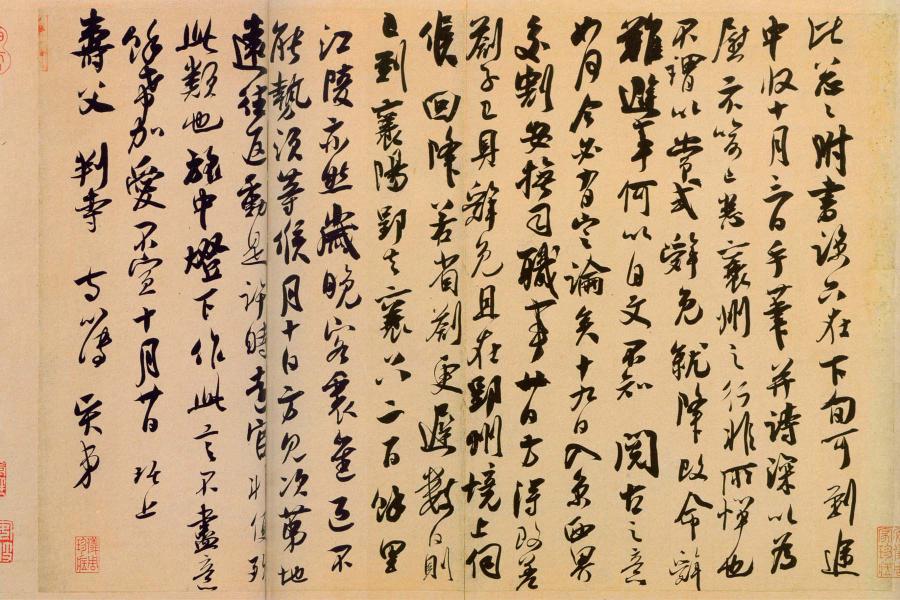 比忩忩附書談六在下旬可到遞
中收十月三日手筆并詩深以為
慰示諭已悉襄州之行非所憚也
不謂以黨或辭免就降改命辭
難避事何以自文不知閱古之意
如月令必有定論矣十九日入京西界
交割安撫司職事廿日方得改差
劄子已具辭免且在郢州境上伺
候回降若省劄更遲數日則
已到襄陽郢去襄八二百餘里
江陵亦然歲晚客裏進退不
能勢須等候月十日方見次第地
遠往返動是許時去官
此類也強中燈下作此言不盡意
餘希加愛不宣十月廿日 琚上
壽父判寺 賢弟